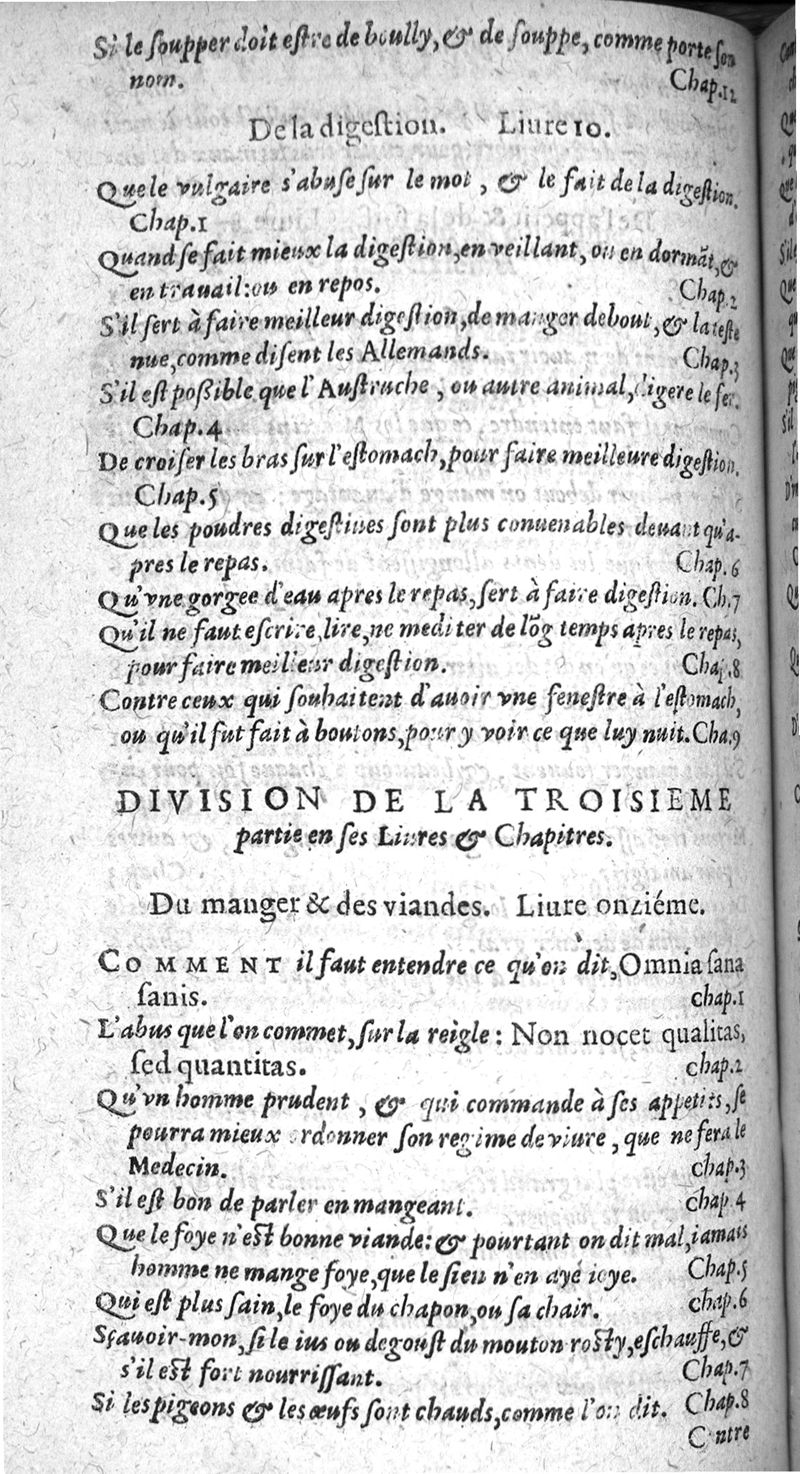 Si le ſoupper doit eſtre de boully, & de ſouppe, comme porte ſon
nom. Chap.12
De la digeſtion. Liure 10.
Que le vulgaire s'abuſe ſur le mot, & le fait de la digeſtion.
Chap.1
Quand ſe fait mieux la digeſtion, en veillant, ou en dormãt, &
en trauail: ou en repos. Chap.2
S'il ſert à faire meilleur digeſtion, de manger debout, & la teſte
nue, comme diſent les Allemands. Chap.3
S'il eſt poßible que l'Auſtruche, ou autre animal, digere le fer.
Chap.4
De croiſer les bras ſur l'eſtomach, pour faire meilleure digeſtion.
Chap.5
Que les poudres digeſtiues ſont plus conuenables deuant qu'a-
pres le repas. Chap.6
Qu'vne gorgee d'eau apres le repas, ſert à faire digeſtion. Ch.7
Qu'il ne faut eſcrire, lire, ne mediter de lõg temps apres le repas,
pour faire meilleur digeſtion. Chap.8
Contre ceux qui ſouhaitent d'auoir vne feneſtre à l'eſtomach,
ou qu'il fut fait à boutons, pour y voir ce que luy nuit. Cha.9
DIVISION DE LA TROISIEME
partie en ſes Liures & Chapitres.
Du manger & des viandes. Liure onziéme.
COMMENT il faut entendre ce qu'on dit, Omnia ſana
ſanis. chap.1
L'abus que l'on commet, ſur la reigle: Non nocet qualitas,
ſed quantitas. chap.2
Qu'vn homme prudent, & qui commande à ſes appetits, ſe
pourra mieux ordonner ſon regime de viure, que ne fera le
Medecin. chap.3
S'il eſt bon de parler en mangeant. chap.4
Que le foye n'eſt bonne viande: & pourtant on dit mal, iamais
homme ne mange foye, que le ſien n'en ayé ioye. Chap.5
Qui eſt plus ſain, le foye du chapon, ou ſa chair. chap.6
Sçauoir-mon, ſi le ius ou degouſt du mouton roſty, eſchauffe, &
s'il eſt fort nourriſſant. Chap.7
Si les pigeons & les œufs ſont chauds, comme l'on dit. Chap.8
Contre